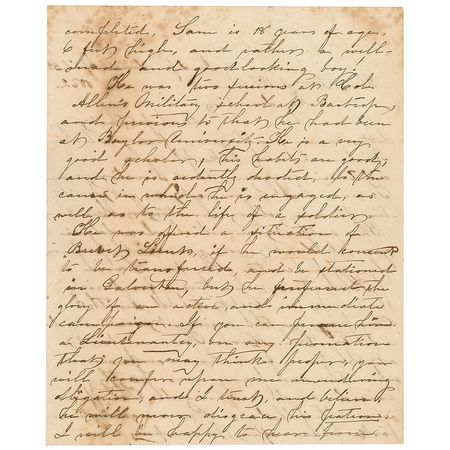 completed, Sam is 18 years of age,
6 feet high, and rather a well-
made and good looking boy!
He was two sessions at Col.
Allen's Military school at Bastrop,
and previous to that he had been
at Baylor University. He is a very
good scholar, his habits are good,
and he is ardently devoted, to the
cause in which he is engaged, as
well, as to the life of a soldier,
He was offered a situation of
Brevet Lieut, if he would consent
to be transferred and be stationed
in Galveston, but he preferred the
glory of an active and immediate
campaign. If you can procure him
a Lieutenantcy, or any promotion
that you may think proper, you
will confer upon me an
obligation, and I trust, and believe
he will never disgrace his Patron.
I will be happy to hear from